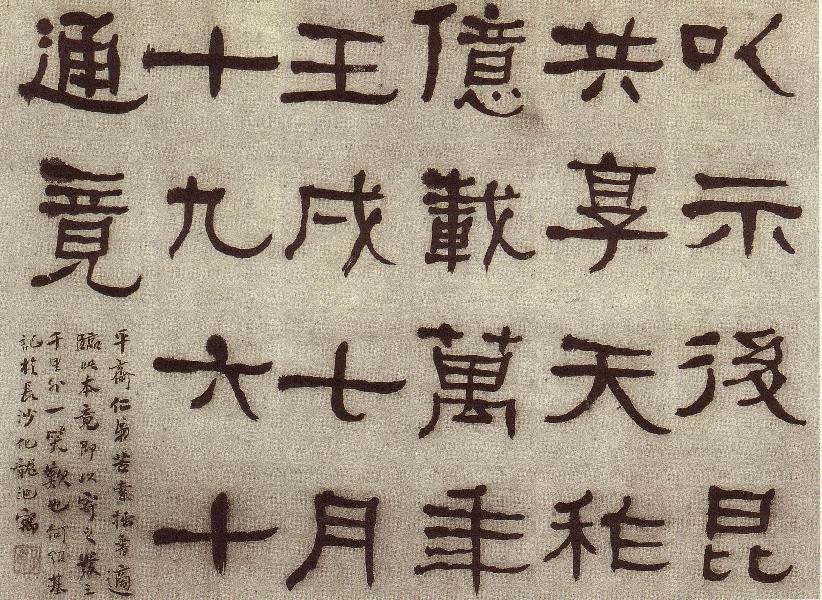 㕥示後昆
共享天祚
億載萬年
壬戌七月
十九六十
通竟
平齋仁弟苦索拙書適
臨此本竟即以寄之發三
千里外一笑歎也何紹基
記於長沙化龍池寓